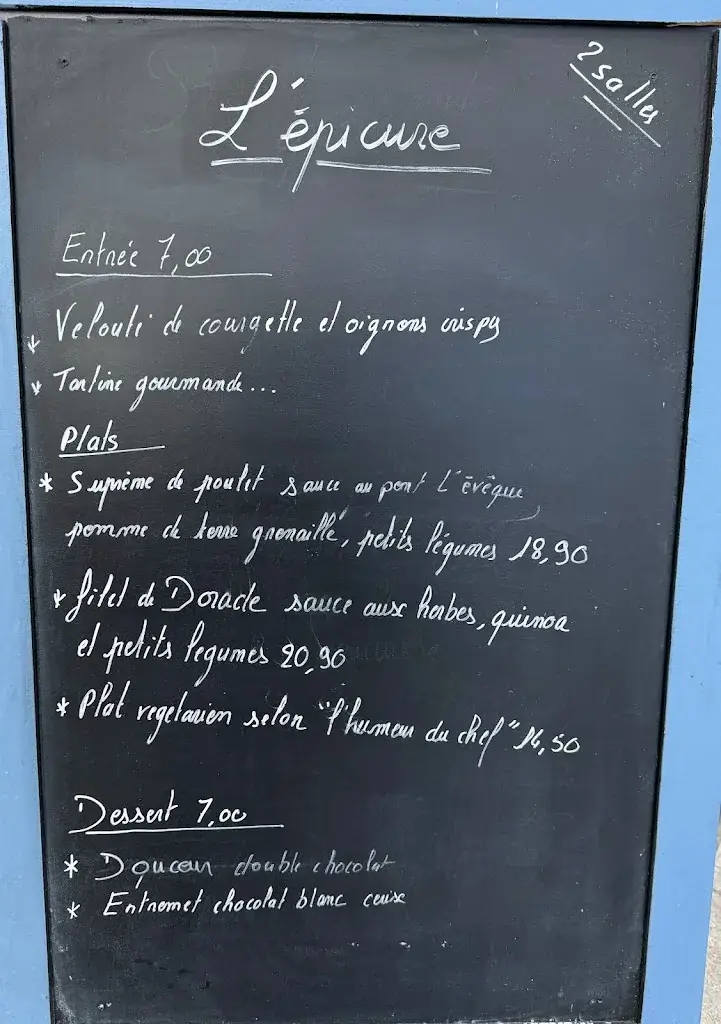 2 salles
L'épicure
Entrée 7,00
Velouté de courgette et oignons crispy
* Tartine gourmande...
Plats
* Suprème de poulet sauce au pont L'évêque,
pomme de terre grenaille, petits légumes 18,90
* filet de Dorade sauce aux herbes, quinoa
et petits legumes 20,90
* Plat vegetarien selon "l'humeur du chef" 14,50
Dessert 7,00
* Douceur double chocolat
* Entremet chocolat blanc cerise